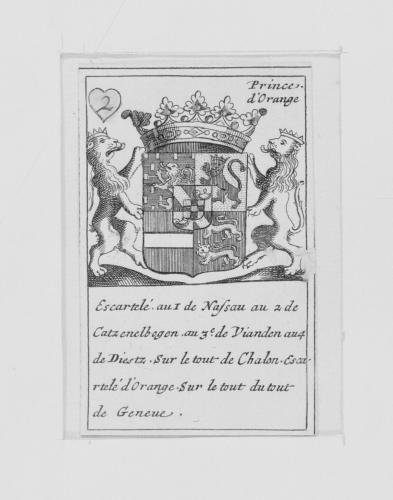 2
Prince.
d'Orange
Escartelé. au 1 de Nassau au 2 de
Catzenelbogen. au 3.e de Vianden au 4
de Diestz. Sur le tout de Chalon. Esca-
rtelé d'Orange. Sur le tout du tout
de Geneue.